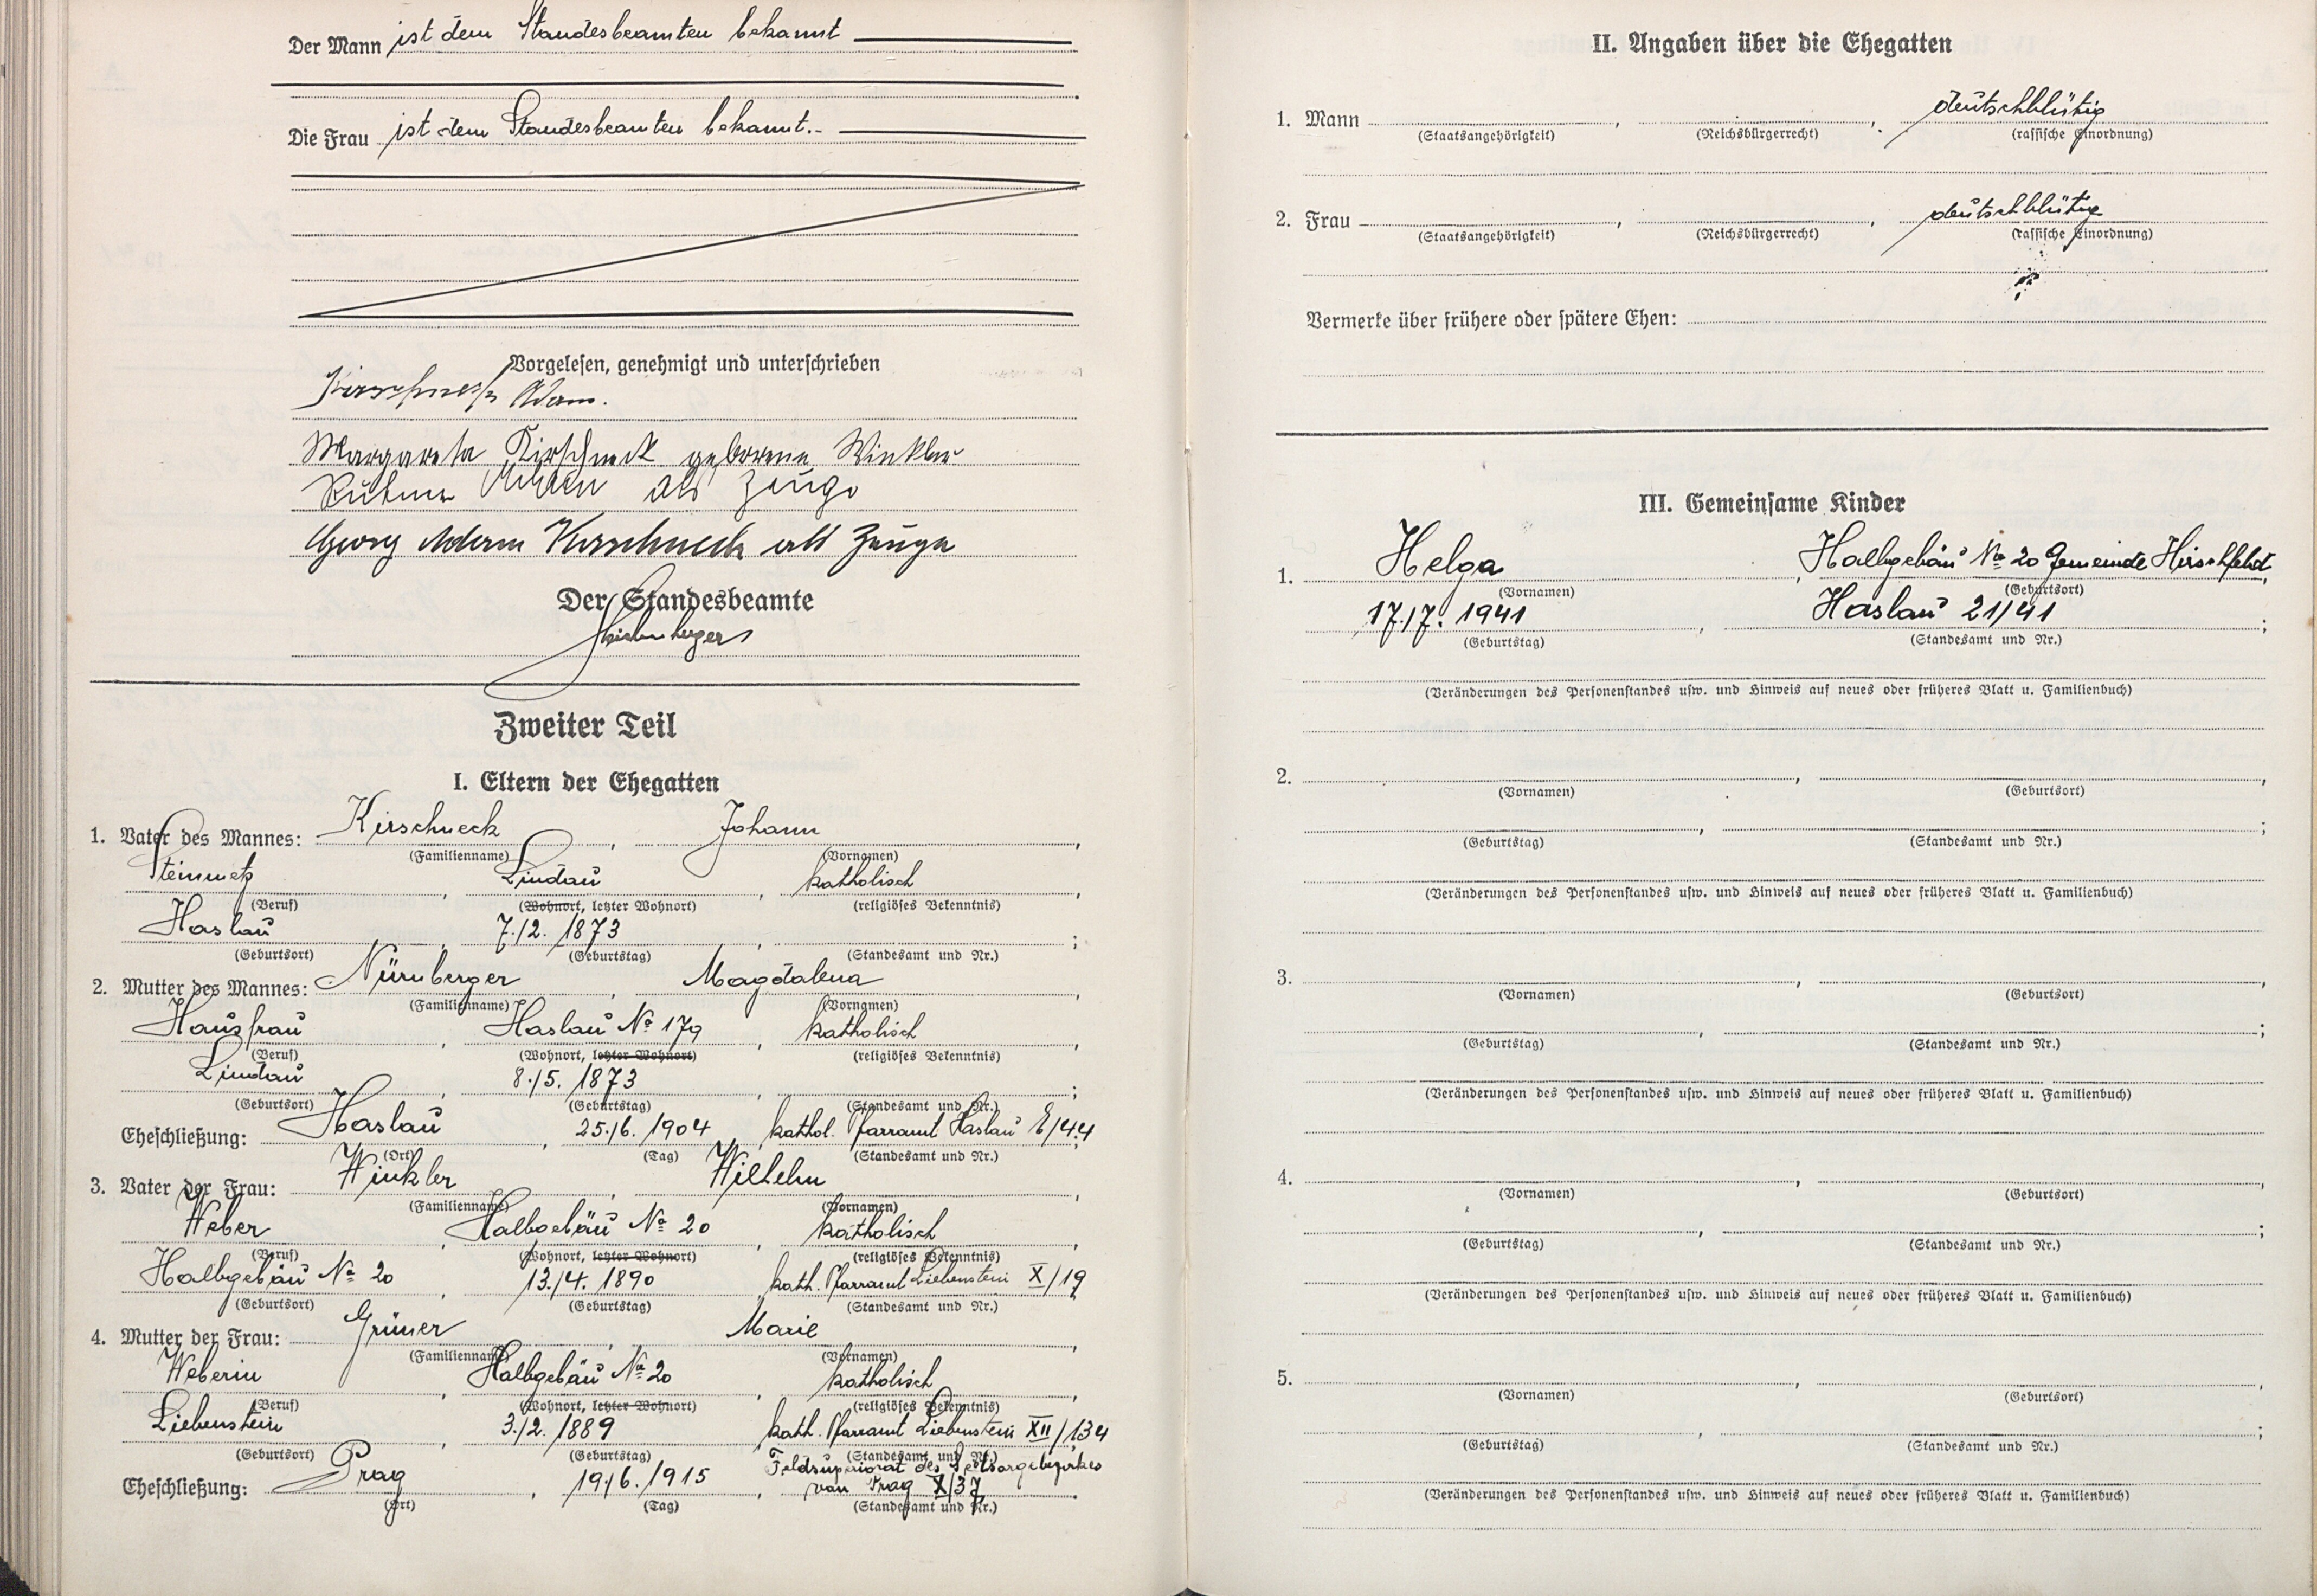 Der Mann ist dem Standesbeamten bekannt
Die Frau ist dem Standesbeamten bekannt.-
Vorgelesen, genehmigt und unterschrieben
Kirschneck Adam.
Margareta Kirschneck geborene Winkler
als Zeuge
Georg Adam Kirschneck als Zeuge
Der Standesbeamte
Zweiter Teil
I. Eltern der Ehegatten
1. Vater des Mannes: Kirschneck, Johann,
(Familienname) (Vornamen)
Steinmetz, Lindau, katholisch,
(Beruf) (Wohnort, letzter Wohnort) (religiöses Bekenntnis)
Haslau, 7./2. 1873, ;
(Geburtsort) (Geburtstag) (Standesamt und Nr.)
2. Mutter des Mannes: Nürnberger, Magdalena,
(Familienname) (Vornamen)
Hausfrau, Haslau № 179, katholisch,
(Beruf) (Wohnort, letzter Wohnort) (religiöses Bekenntnis)
Lindau, 8./5. 1873, ;
(Geburtsort) (Geburtstag) (Standesamt und Nr.)
Eheschließung: Haslau, 25./6. 1904, kathol. Pfarramt Haslau E/44;
(Ort) (Tag) (Standesamt und Nr.)
3. Vater der Frau: Winkler, Wilhelm,
(Familienname) (Vornamen)
Weber, Halbgebäu № 20, katholisch,
(Beruf) (Wohnort, letzter Wohnort) (religiöses Bekenntnis)
Halbgebäu № 20, 13./4. 1890, kath. Pfarramt Liebenstein X/19;
(Geburtsort) (Geburtstag) (Standesamt und Nr.)
4. Mutter der Frau: Grüner, Marie,
(Familienname) (Vornamen)
Weberin, Halbgebäu № 20, katholisch,
(Beruf) (Wohnort, letzter Wohnort) (religiöses Bekenntnis)
Liebenstein, 3./2. 1889, kath. Pfarramt Liebenstein XII/134;
(Geburtsort) (Geburtstag) (Standesamt und Nr.)
Feldsuperiorat des Seelsorgebezirkes
Eheschließung: Prag, 19./6. 1915, von Prag X/37.
(Ort) (Tag) (Standesamt und Nr.)
II. Angaben über die Ehegatten
1. Mann , , deutschblütig
(Staatsangehörigkeit) (Reichsbürgerrecht) (rassische Einordnung)
2. Frau , , deutschblütig
(Staatsangehörigkeit) (Reichsbürgerrecht) (rassische Einordnung)
Vermerke über frühere oder spätere Ehen:
III. Gemeinsame Kinder
1. Helga, Halbgebäu № 20 Gemeinde Hirschfeld,
(Vornamen) (Geburtsort)
17./7. 1941, Haslau 21/41;
(Geburtstag) (Standesamt und Nr.)
(Veränderungen des Personenstandes usw. und Hinweis auf neues oder früheres Blatt u. Familienbuch)
2. , ,
(Vornamen) (Geburtsort)
, ;
(Geburtstag) (Standesamt und Nr.)
(Veränderungen des Personenstandes usw. und Hinweis auf neues oder früheres Blatt u. Familienbuch)
3. , ,
(Vornamen) (Geburtsort)
, ;
(Geburtstag) (Standesamt und Nr.)
(Veränderungen des Personenstandes usw. und Hinweis auf neues oder früheres Blatt u. Familienbuch)
4. , ,
(Vornamen) (Geburtsort)
, ;
(Geburtstag) (Standesamt und Nr.)
(Veränderungen des Personenstandes usw. und Hinweis auf neues oder früheres Blatt u. Familienbuch)
5. , ,
(Vornamen) (Geburtsort)
, ;
(Geburtstag) (Standesamt und Nr.)
(Veränderungen des Personenstandes usw. und Hinweis auf neues oder früheres Blatt u. Familienbuch)